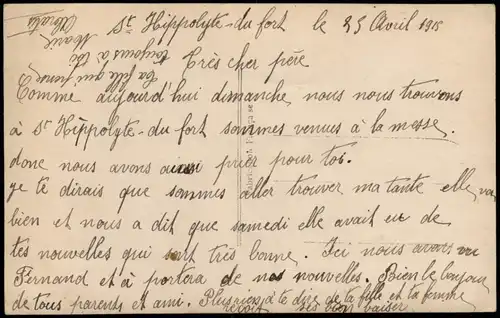 St Hippolyte-du fort le 25 Avril 1915
Très cher père
Comme aujourd'hui dimanche nous nous trouvons
à St Hippolyte-du fort sommes venues à la messe.
donc nous avons aussi prier pour toi.
je te dirais que sommes aller trouver ma tante elle va
bien et nous a dit que samedi elle avait eu de
tes nouvelles qui sont très bonne. Ici nous avons vu
Fernand et à portera de nos nouvelles. Bien le bonjour
de tous parents et ami. Plus rien à te dire de ta fille et ta femme
reçoit bon baiser
Ta fille qui pense
toujours à toi
Marie